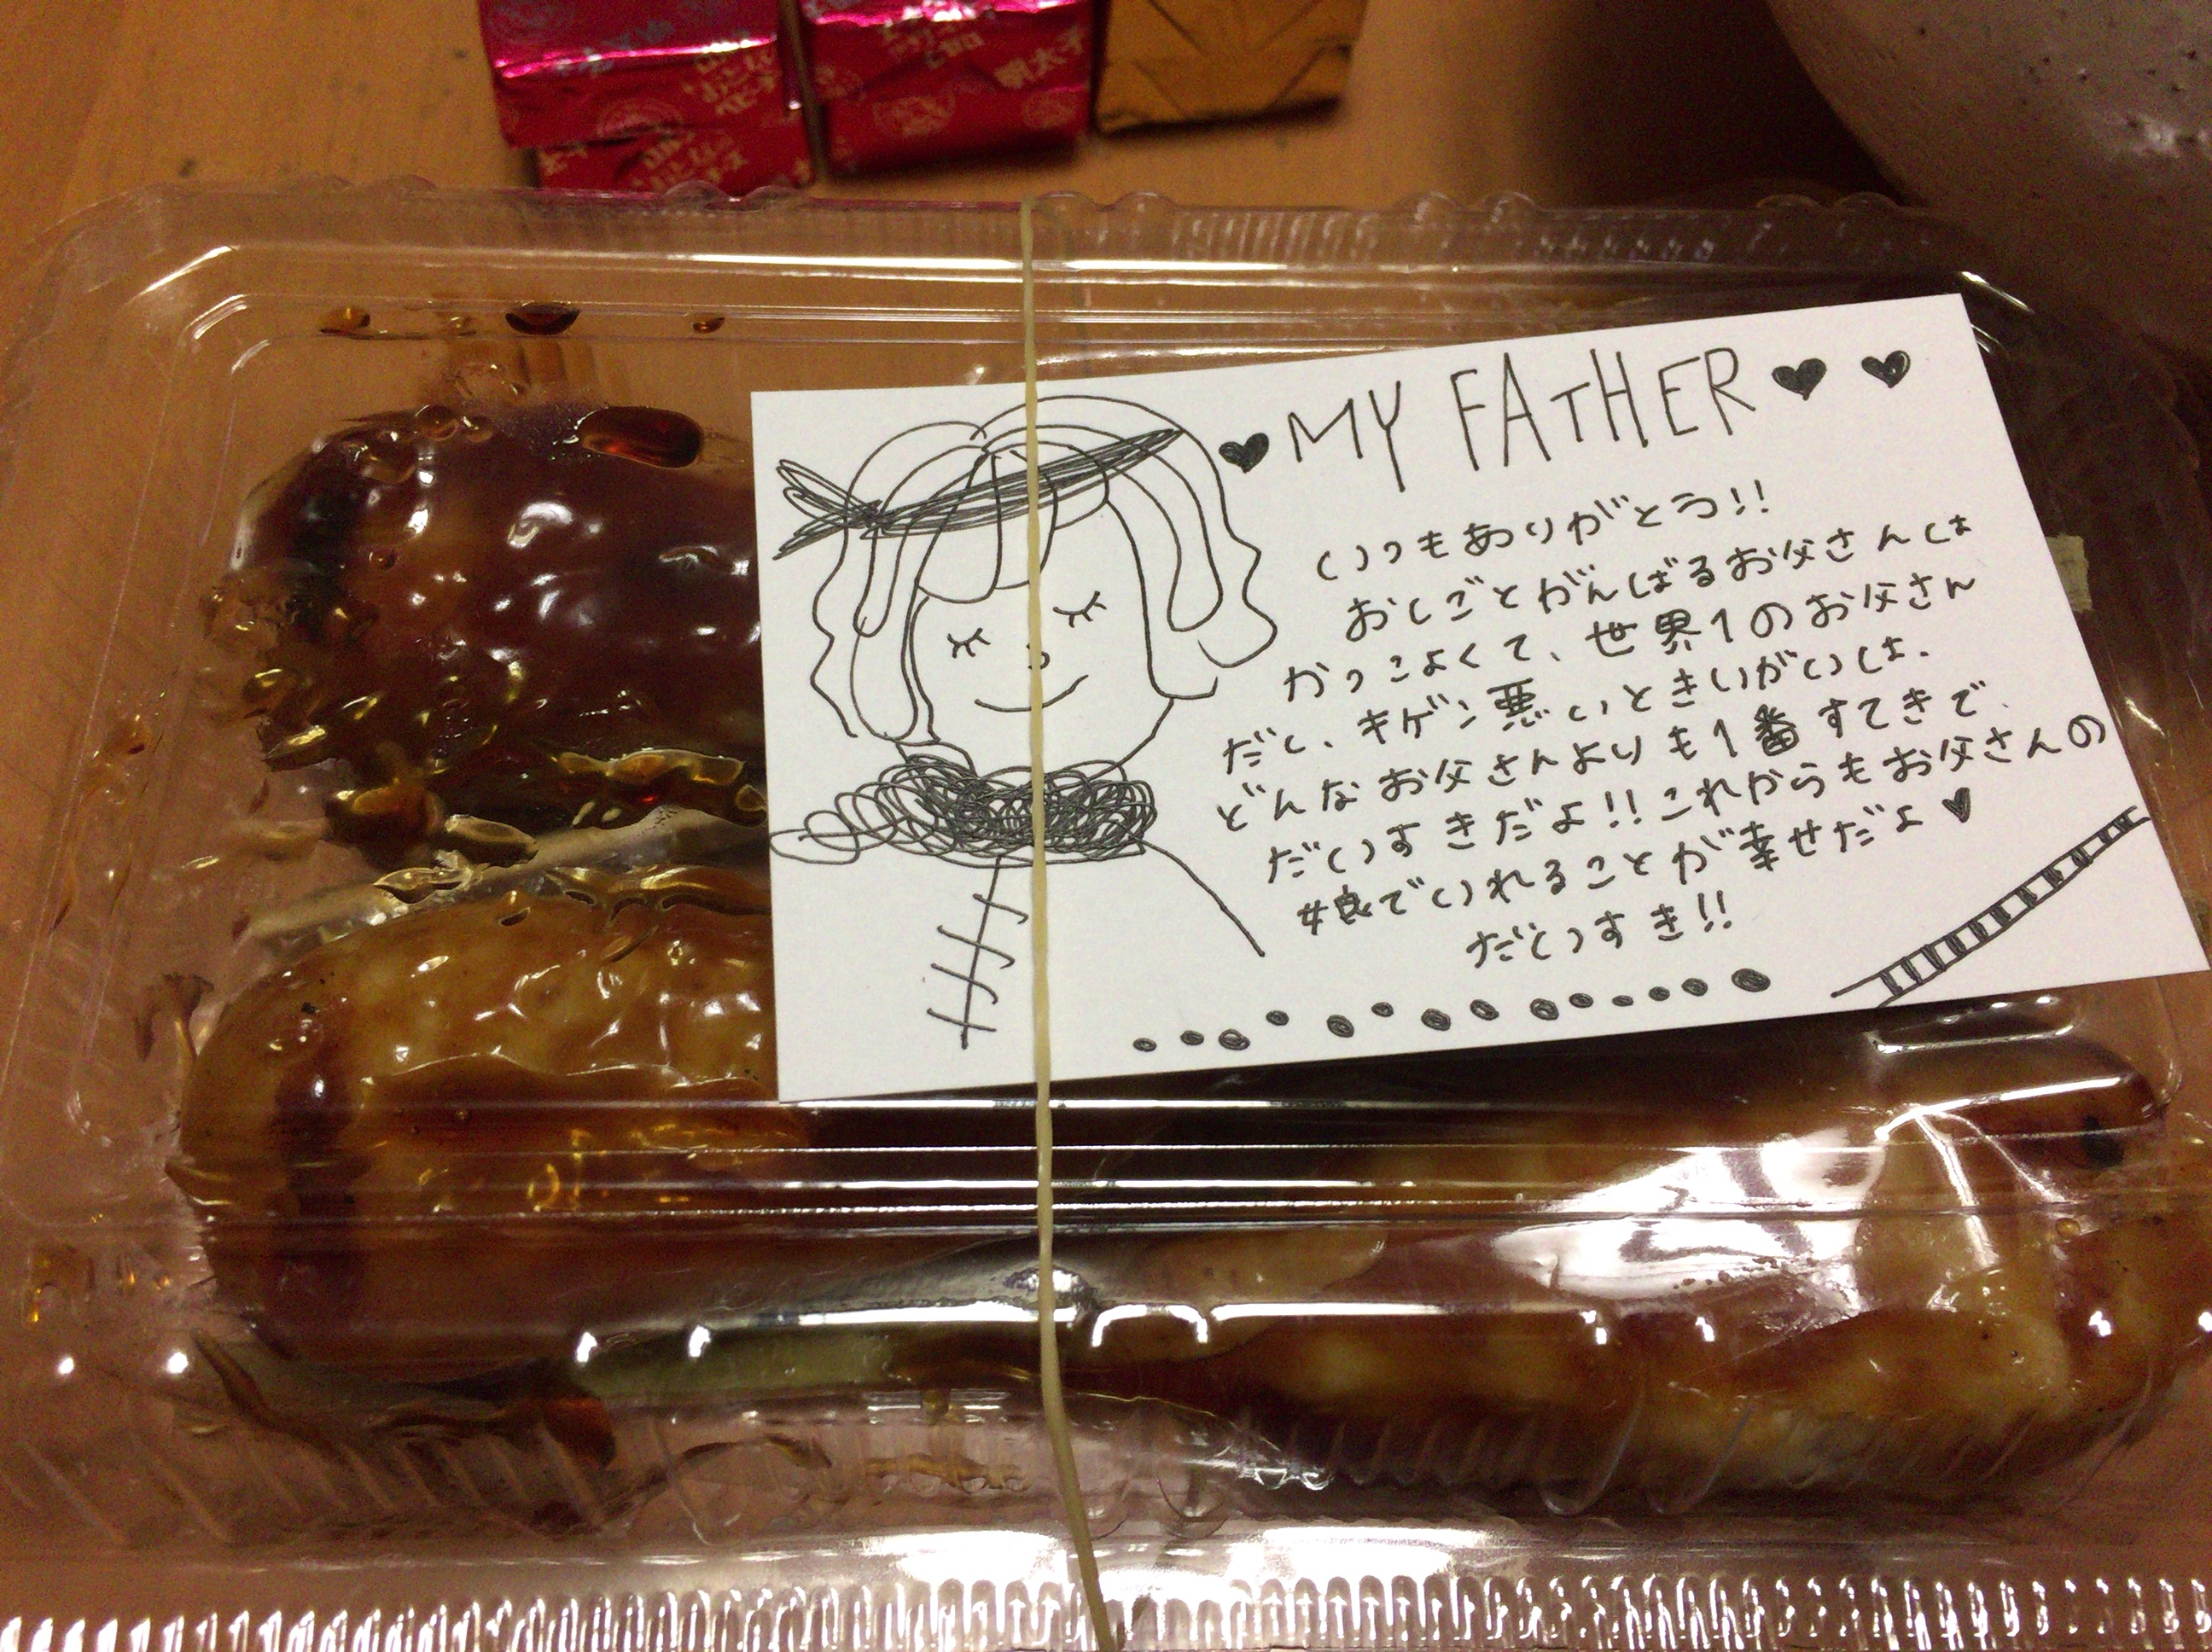 ♥MY FATHER♥♥
いつもありがとう!!
おしごとがんばるお父さんは
かっこよくて、世界1のお父さん
だし、キゲン悪いときいがいは、
どんなお父さんよりも1番すてきで、
だいすきだよ!!これからもお父さんの
娘でいれることが幸せだよ♥
だいすき!!